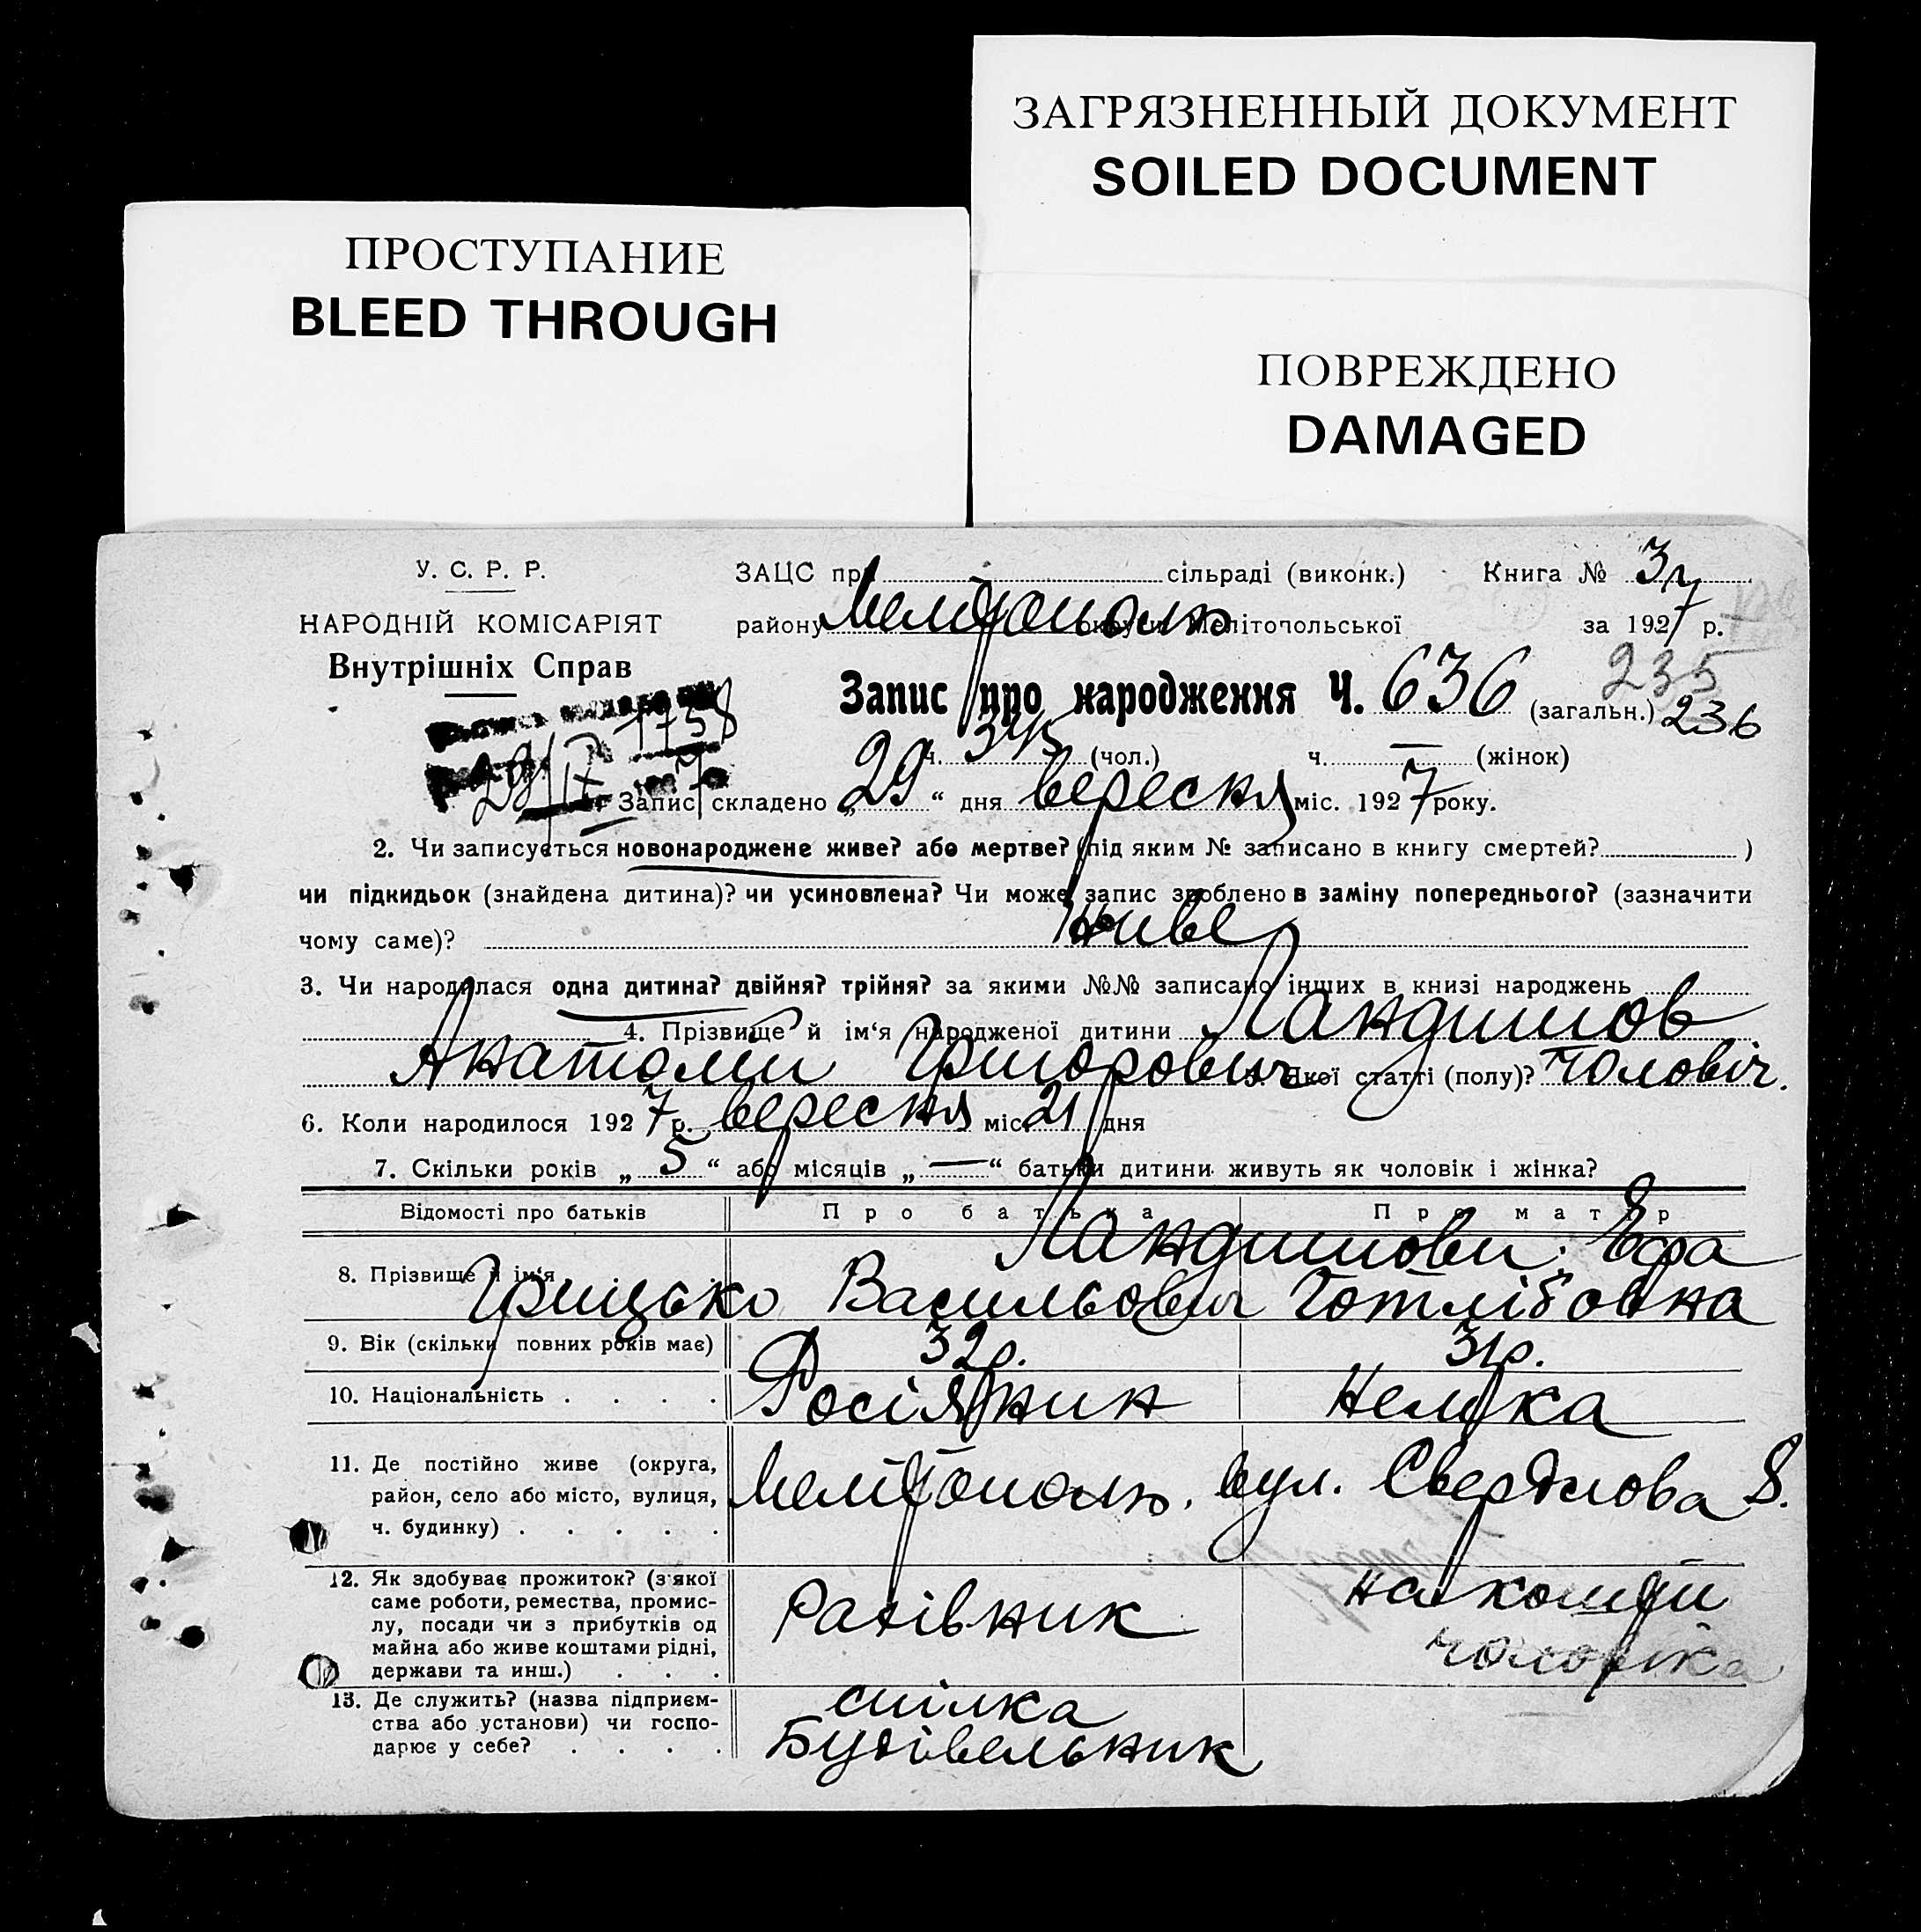 ЗАГРЯЗНЕННЫЙ ДОКУМЕНТ
SOILED DOCUMENT
ПРОСТУПАНИЕ
BLEED THROUGH
ПОВРЕЖДЕНО
DAMAGED
У. С. Р. Р.
НАРОДНІЙ КОМІСАРІЯТ
Внутрішніх Справ
ЗАЦС при сільраді (виконк.) Книга №
району Мелітополь округи Мелітопольської за 1927 р.
Запис про народження Ч. 636 (загальн.) 236
235
ч. (чол.) ч. — (жінок)
1758
29/IX 7
Запис складено „29“ дня вересня міс. 1927 року.
2. Чи записується новонароджене живе? або мертве? (під яким № записано в книгу смертей? )
чи підкидьок (знайдена дитина)? чи усиновлена? Чи може запис зроблено в заміну попереднього? (зазначити
чому саме)? живе
3. Чи народилася одна дитина? двійня? трійня? за якими №№ записано інших в книзі народжень
4. Прізвище й ім‘я народженої дитини Ландишов
Анатолій Григорович 5. Якої статті (полу)? чоловіч.
6. Коли народилося 1927 р. вересня міс. 21 дня
7. Скільки років „5“ або місяців „—“ батьки дитини живуть як чоловік і жінка?
Відомості про батьків Про батька Про матір
8. Прізвище й ім‘я Ландишови:
Грицько Васильович Готлібовна
9. Вік (скільки повних років має) 32р. 31р.
10. Національність . . . . Росіянин Немка
11. Де постійно живе (округа,
район, село або місто, вулиця,
ч. будинку) . . . . .
Мелітополь, вул. Свердлова 8.
12. Як здобуває прожиток? (з якої
саме роботи, ремества, промис-
лу, посади чи з прибутків од
майна або живе коштами рідні,
держави та инш.) . . .
Рахівник
на кошти
чоловіка
13. Де служить? (назва підприєм-
ства або установи) чи госпо-
дарює у себе? . . . .
спілка
Будівельник